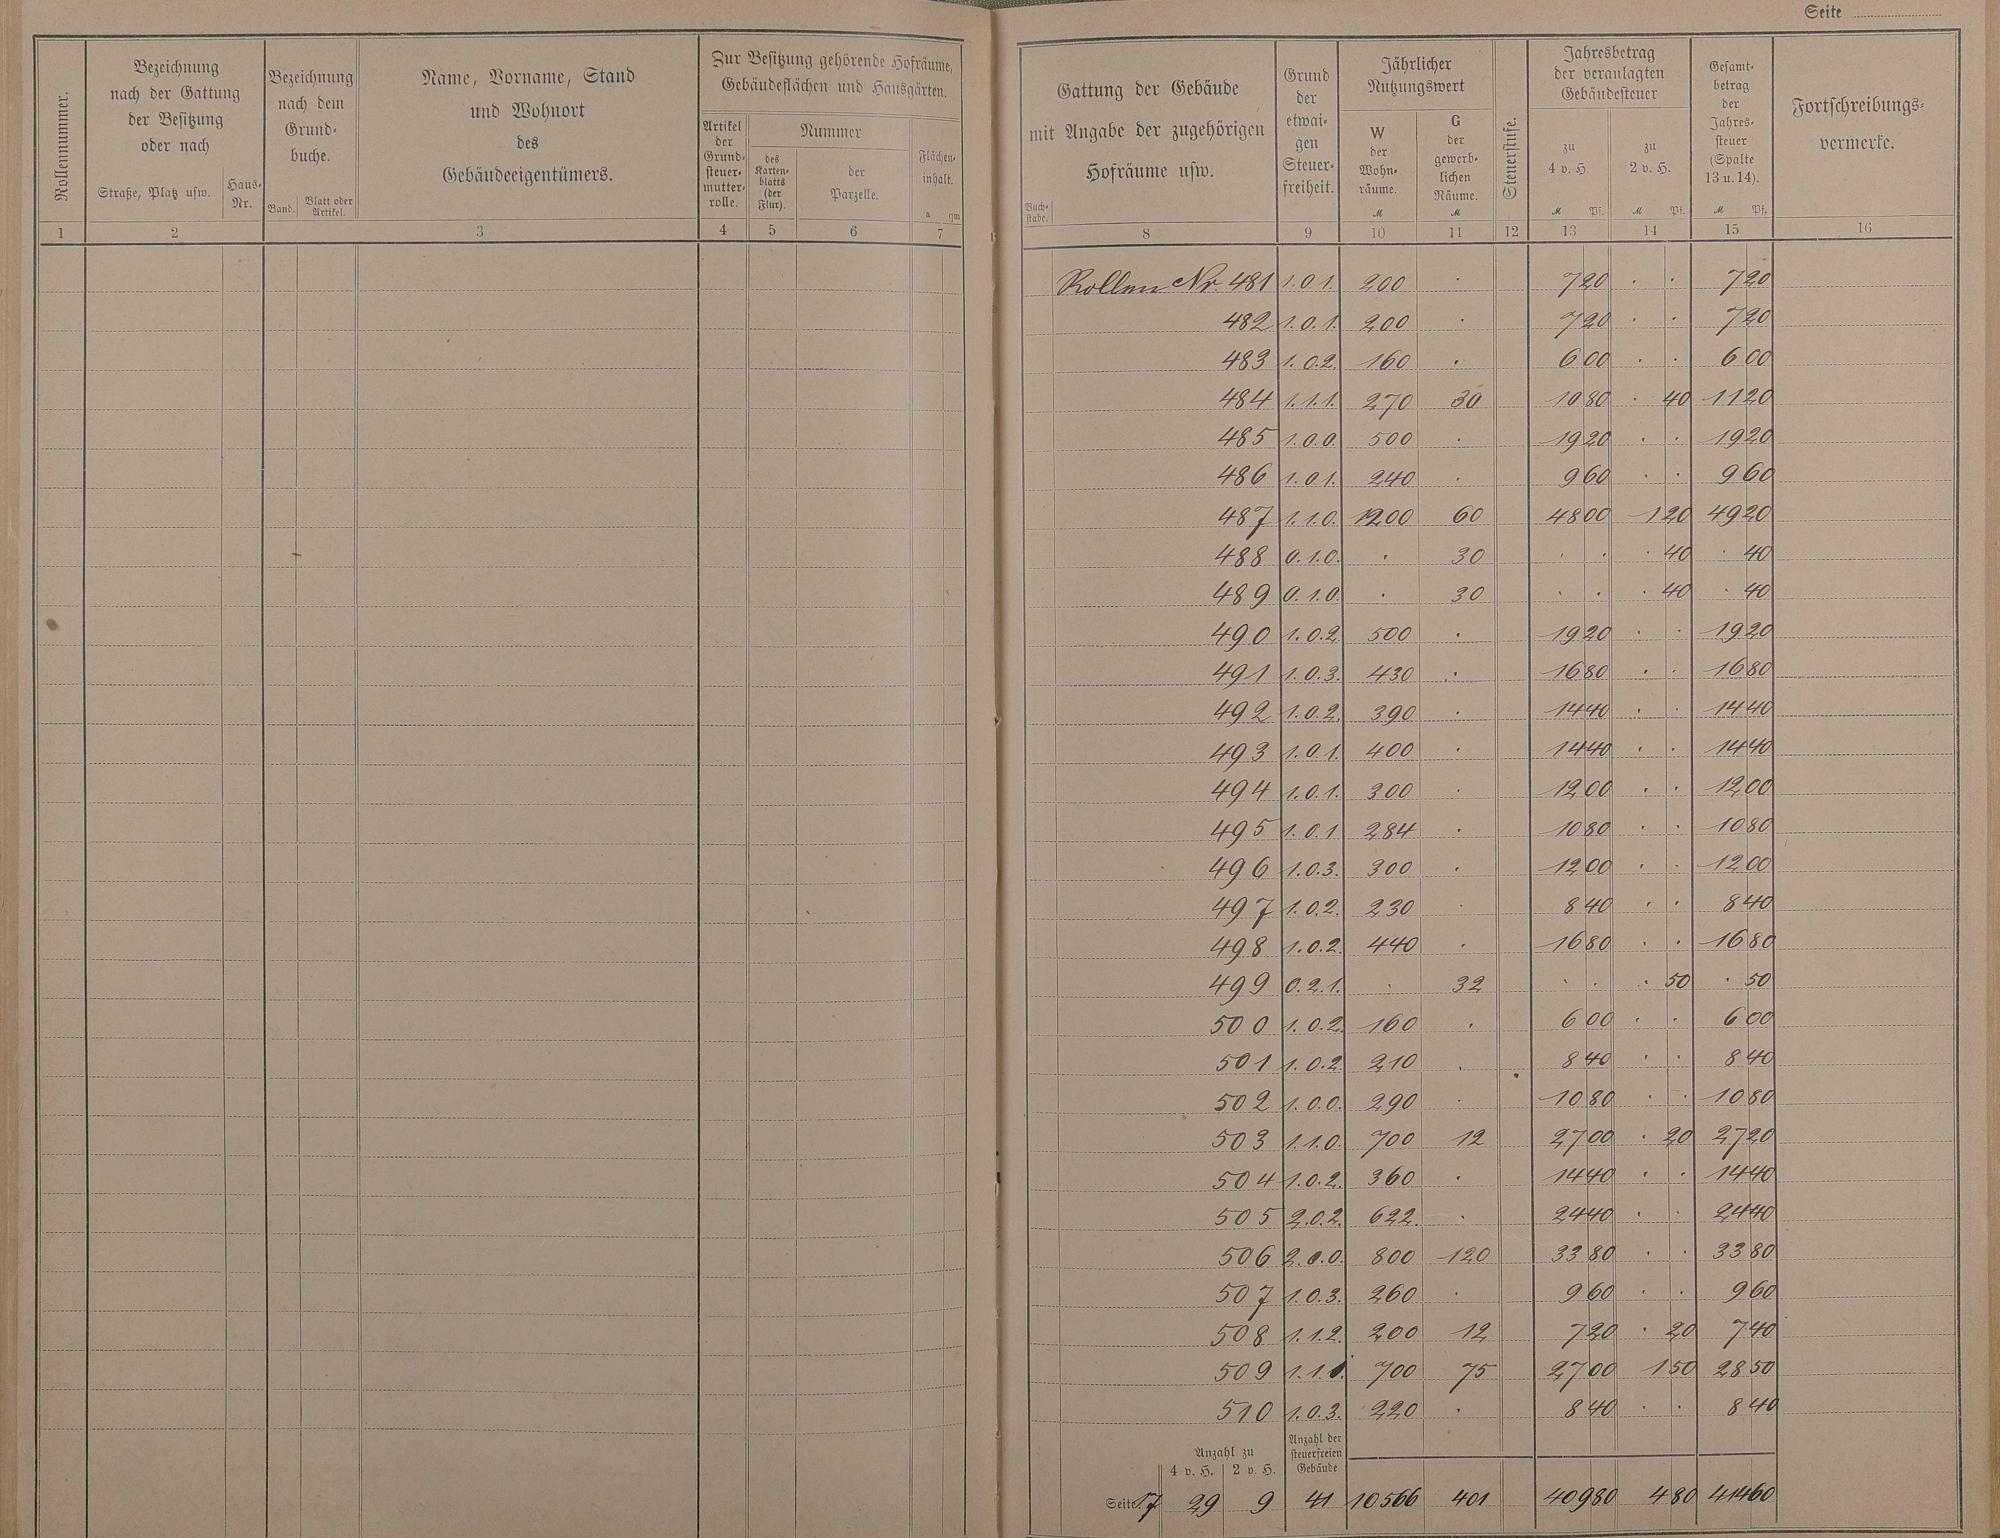 Seite
Rollennummer.
Bezeichnung
nach der Gattung
der Besitzung
oder nach
Straße, Platz usw.
Haus-
Nr.
Bezeichnung
nach dem
Grund-
buche.
Band.
Blatt oder
Artikel.
Name, Vorname, Stand
und Wohnort
des
Gebäudeeigentümers.
Zur Besitzung gehörende Hofräume,
Gebäudeflächen und Hausgärten.
Artikel
der
Grund-
steuer-
mutter-
rolle.
Nummer
des
Karten-
blatts
(der
Flur).
der
Parzelle.
Flächen-
inhalt.
a qm
1 2 3 4 5 6 7
Gattung der Gebäude
mit Angabe der zugehörigen
Hofräume usw.
Buch-
stabe.
Grund
der
etwai-
gen
Steuer-
freiheit.
Jährlicher
Nutzungswert
W
der
Wohn-
räume.
M
G
der
gewerb-
lichen
Räume.
M
Steuerstufe.
Jahresbetrag
der veranlagten
Gebäudesteuer
zu
4 v. H.
M Pf.
zu
2 v. H.
M Pf.
Gesamt-
betrag
der
Jahres-
steuer
(Spalte
13 u. 14).
M Pf.
Fortschreibungs-
vermerke.
8 9 10 11 12 13 14 15 16
Rollen Nr. 481 1.0.1. 200 . 7 20 . . 7 20
482 1.0.1. 200 . 7 20 . . 7 20
483 1.0.2. 160 . 6 00 . . 6 00
484 1.1.1. 270 30 10 80 . 40 11 20
485 1.0.0. 500 . 19 20 . . 19 20
486 1.0.1. 240 . 9 60 . . 9 60
487 1.1.0. 1200 60 48 00 1 20 49 20
488 0.1.0. . 30 . . . 40 . 40
489 0.1.0. . 30 . . . 40 . 40
490 1.0.2 500 . 19 20 . . 19 20
491 1.0.3. 430 . 16 80 . . 16 80
492 1.0.2. 390 . 14 40 . . 14 40
493 1.0.1. 400 . 14 40 . . 14 40
494 1.0.1. 300 . 12 00 . . 12 00
495 1.0.1 284 . 10 80 . . 10 80
496 1.0.3. 300 . 12 00 . . 12 00
497 1.0.2. 230 . 8 40 . . 8 40
498 1.0.2. 440 . 16 80 . . 16 80
499 0.2.1. . 32 . . . 50 . 50
500 1.0.2. 160 . 6 00 . . 6 00
501 1.0.2. 210 . 8 40 . . 8 40
502 1.0.0. 290 . 10 80 . . 10 80
503 1.1.0. 700 12 27 00 . 20 27 20
504 1.0.2. 360 . 14 40 . . 14 40
505 2.0.2. 622. . 24 40 . . 24 40
506 2.0.0. 800 120 33 80 . . 33 80
507 1.0.3. 260 . 9 60 . . 9 60
508 1.1.2. 200 12 7 20 . 20 7 40
509 1.1. 700 75 27 00 1 50 28 50
510 1.0.3. 220 . 8 40 . . 8 40
Anzahl zu
4 v. H. 2 v. H.
Anzahl der
steuerfreien
Gebäude
Seite 17 29 9 41 10566 401 409 80 4 80 414 60